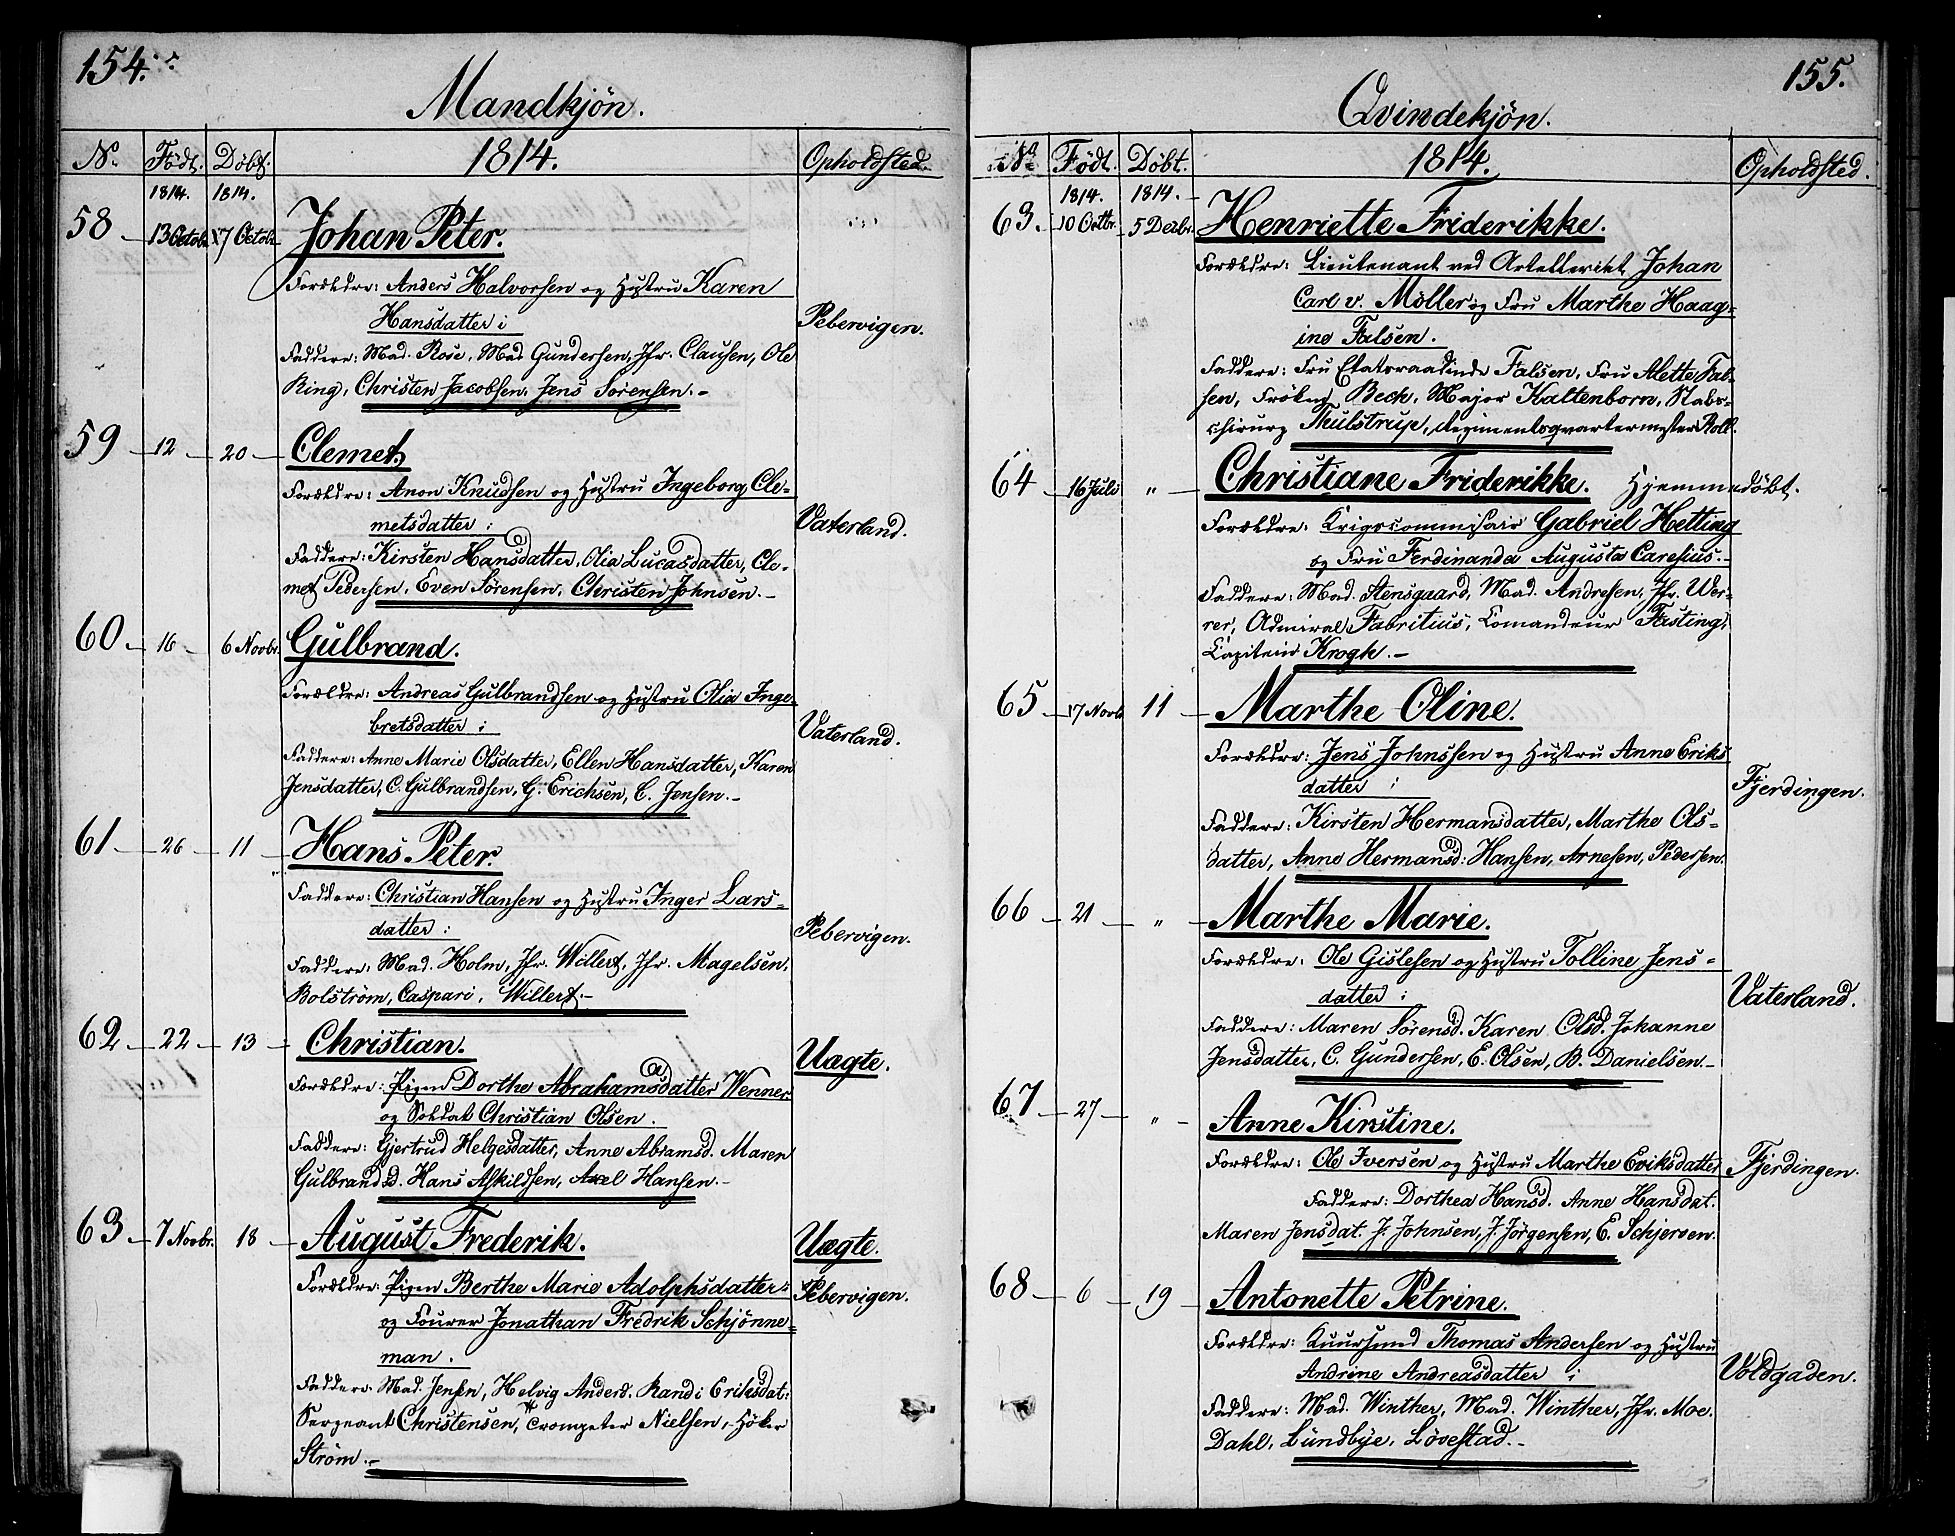 154.
Mandkjön.
No. Födt. Döbt. 1814. Opholdsted.
1814. 1814.
58 13 Octobr. 17 Octobr. Johan Peter.
Forældre: Anders Halvorsen og Hustru Karen
Hansdatter i Pebervigen.
Faddere: Mad. Rose, Mad Gundersen, Jfr. Clausen, Ole
Ring, Christen Jacobsen, Jens Sörensen.
59 12 20 Clemet.
Forældre: Anon Knudsen og Hustru Ingeborg Cle-
metsdatter i Vaterland.
Faddere: Kirsten Hansdatter, Olia Lucasdatter, Cle-
met Pedersen, Even Sörensen, Christen Johnsen.
60 16 6 Novbr. Gulbrand.
Forældre: Andreas Gulbrandsen og Hustru Olia Inge-
bretsdatter i Vaterland.
Faddere: Anne Marie Olsdatter, Ellen Hansdatter, Karen
Jensdatter, C. Gulbrandsen, G. Erichsen, C. Jensen.
61 26 11 Hans Peter.
Faddere: Christian Hansen og Hustru Inger Lars-
datter: Pebervigen.
Faddere: Mad. Holm, Jfr. Willert, Jfr. Magelsen,
Bolström, Caspari, Willert.
62 22 13 Christian. Uægte.
Forældre: Pigen Dorthe Abrahamsdatter Wenner
og Soldat Christian Olsen.
Faddere: Gjertrud Helgesdatter, Anne Abramsd. Maren
Gulbrandsd. Hans Askildsen, Axel Hansen.
63 7 Novbr. 18 August Frederik. Uægte.
Forældre: Pigen Berthe Marie Adolphsdatter Pebervigen.
og Fourer Jonathan Fredrik Schjönne-
man.
Faddere. Mad. Jensen, Helvig Andersd. Randi Eriksdat:
Sergeant Christensen, Trompeter Nielsen, Höker
Ström.
155.
Qvindekjön.
No. Födt. Döbt. 1814. Opholdsted.
1814. 1814.
63. 10 Octbr. 5 Decbr. Henriette Friderikke.
Forældre: Lieutenant ved Artelleriet Johan
Carl v. Möller og Fru Marthe Haag-
ine Falsen.
Faddere: Fru Etatsraadinde Falsen, Fru Alette Fal-
sen, Fröken Beck, Major Kaltenborn, Stabs-
chirurg Thulstrup, Regimentsqvartermester Roll.
64 16 Juli " Christiane Friderikke. Hjemmedöbt.
Forældre: Krigscommisair Gabriel Hetting
og Fru Ferdinanda Augusta Caresius.
Faddere: Mad. Stensgaard, Mad. Andresen, Jfr. Wer-
rer, Admiral Fabritius, Comandeur Fasting,
Capitein Krogh.
65 17 Novb. 11 Marthe Oline.
Forældre: Jens Johnssen og Hustru Anne Eriks
datter i Fjerdingen.
Faddere: Kirsten Hermansdatter, Marthe Ols-
datter, Anne Hermansd: Hansen, Arnesen, Pedersen.
66 21 " Marthe Marie.
Forældre: Ole Gislesen og Hustru Tolline Jens-
datter i Vaterland.
Faddere: Maren Sörensd. Karen Olsd. Johanne
Jensdatter, C. Gundersen, E. Olsen, B. Danielsen.
67 27 " Anne Kirstine.
Forældre: Ole Iversen og Hustru Marthe Eriksdatter Fjerdingen.
Faddere: Dorthea Hansd. Anne Hansdat.
Maren Jensdat. J. Johnsen, J. Jörgensen, E. Schjerven.
68 6 19 Antonette Petrine.
Forældre: Thomas Andersen og Hustru
Andrine Andreasdatter i Voldgaden.
Faddere: Mad. Winther, Mad. Winther, Jfr. Moe.
Dahl, Lundbye, Lövestad.